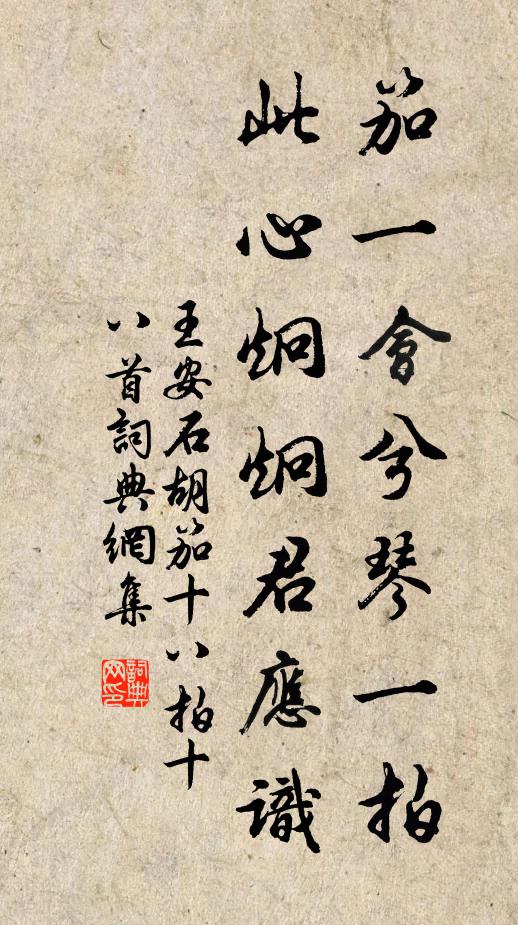 笳一會兮琴一拍
此心炯炯君應識
王安石胡笳十八拍十
八首詞典網集
詞典网印